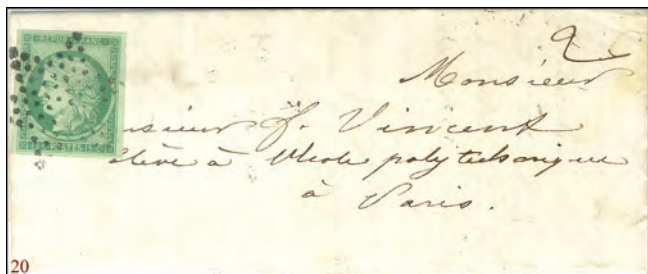 REPUB.FRANC.
15 c. POSTES 15 c.
2
Monsieur
nsieur J. Vincent
élève à l'école polytechnique
à Paris.
20